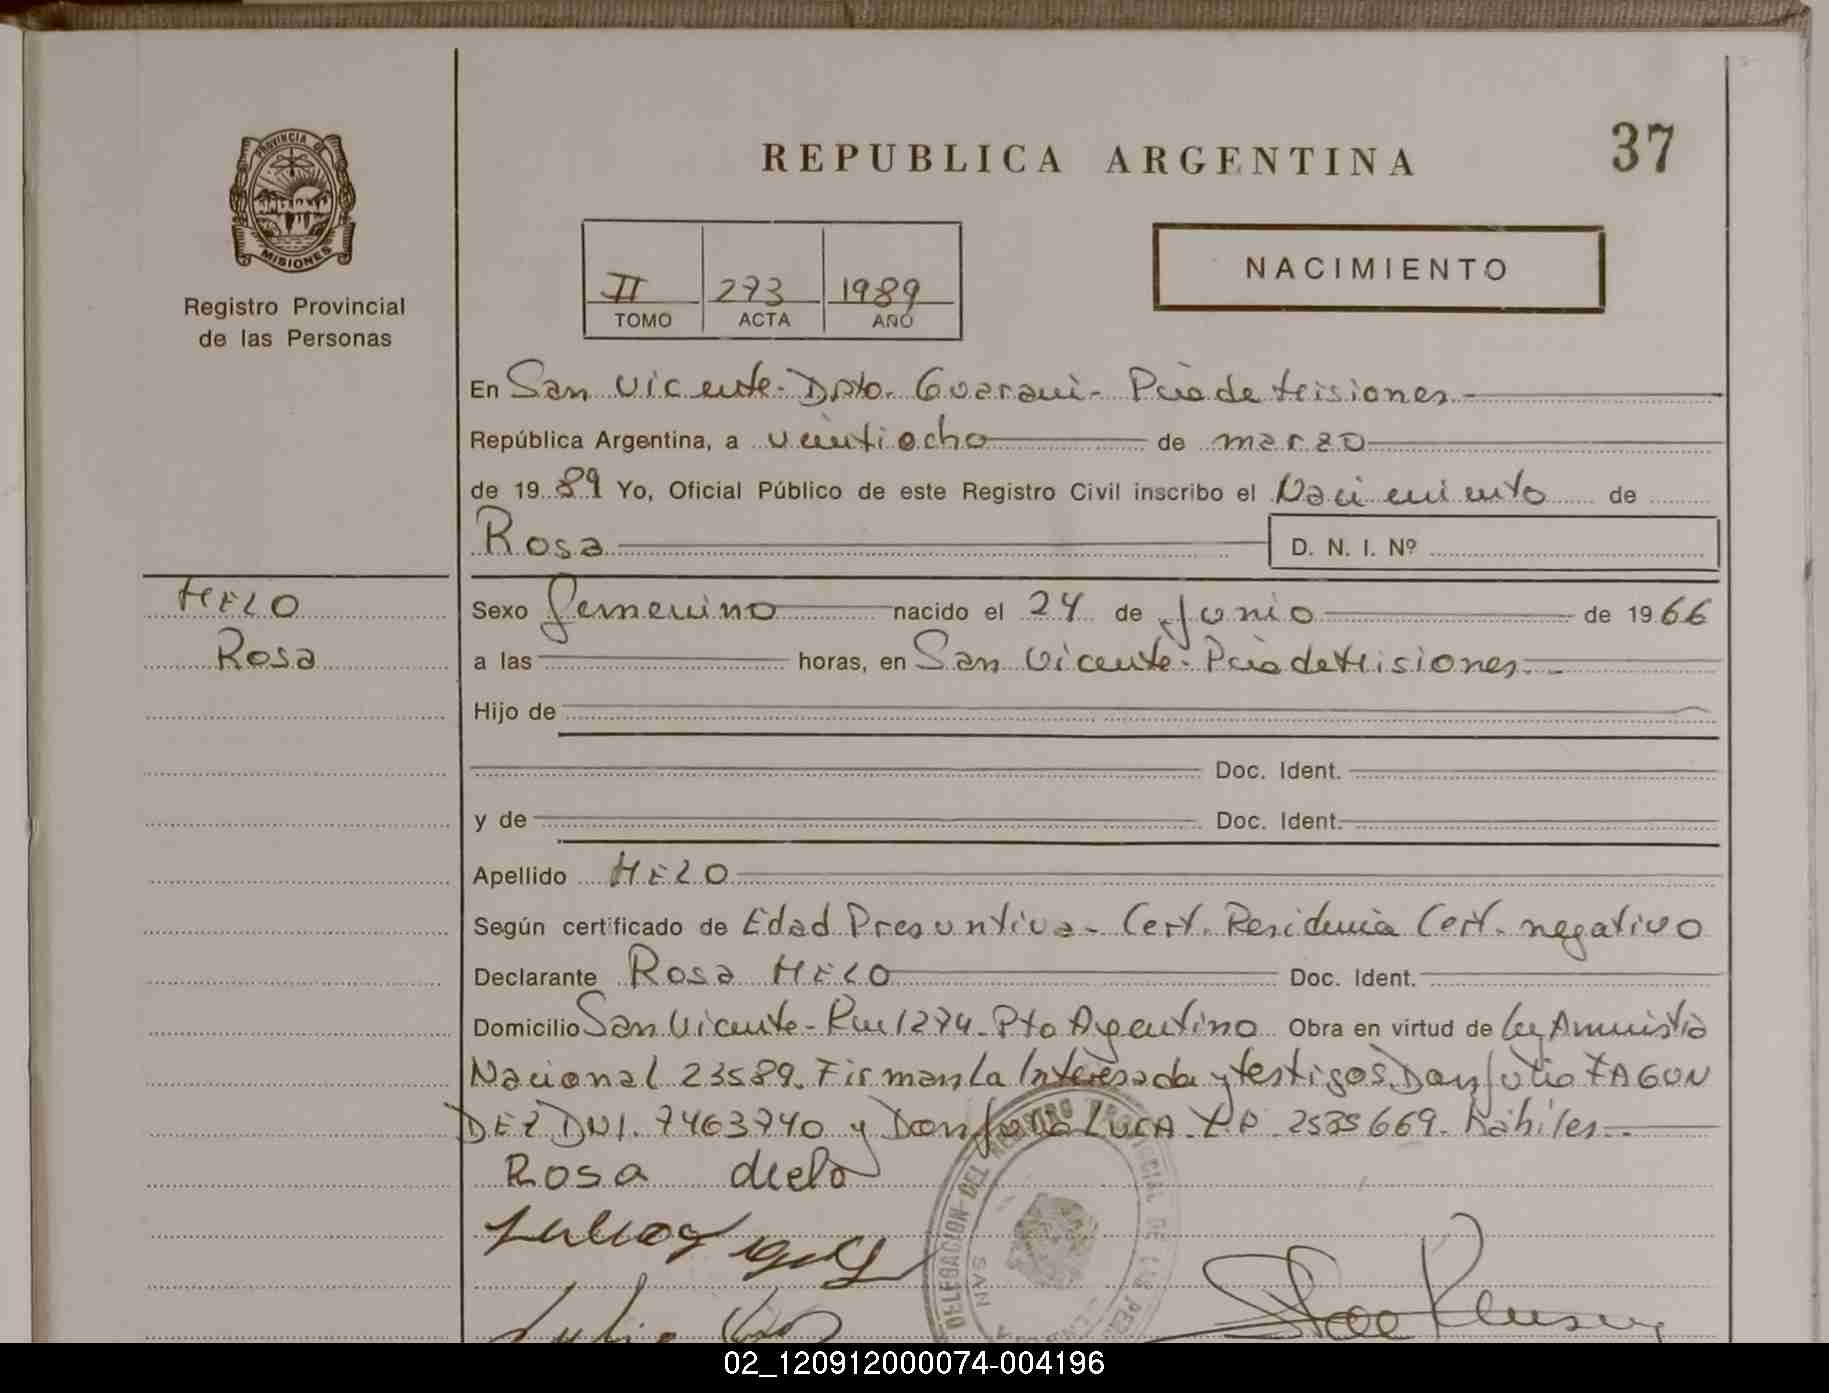 PROVINCIA DE
MISIONES
Registro Provincial
de las Personas
REPUBLICA ARGENTINA
37
II 273 1989
TOMO ACTA AÑO
NACIMIENTO
En San Vicente - Dpto. Guarani - Pcia de Misiones
República Argentina, a veintiocho de marzo
de 19 89 Yo, Oficial Público de este Registro Civil inscribo el Nacimiento de
Rosa D. N. I. Nº
MELO
Rosa
Sexo femenino nacido el 24 de Junio de 19 66
a las horas, en San Vicente - Pcia de Misiones
Hijo de
Doc. Ident.
y de Doc. Ident.
Apellido MELO
Según certificado de Edad Presuntiva - Cert. Residencia Cert. negativo
Declarante Rosa MELO Doc. Ident.
Domicilio San Vicente - Km 1274 - Pto Argentino Obra en virtud de Ley Amnistia
Nacional 23589. Firman La Interesada y testigos Don Julio FAGUN
DEZ DNI. 7463740 y Don LUCA 2535669. Hábiles
Rosa Melo
DELEGACION DEL REGISTRO PROVINCIAL DE LAS PER
SAN
02_120912000074-004196